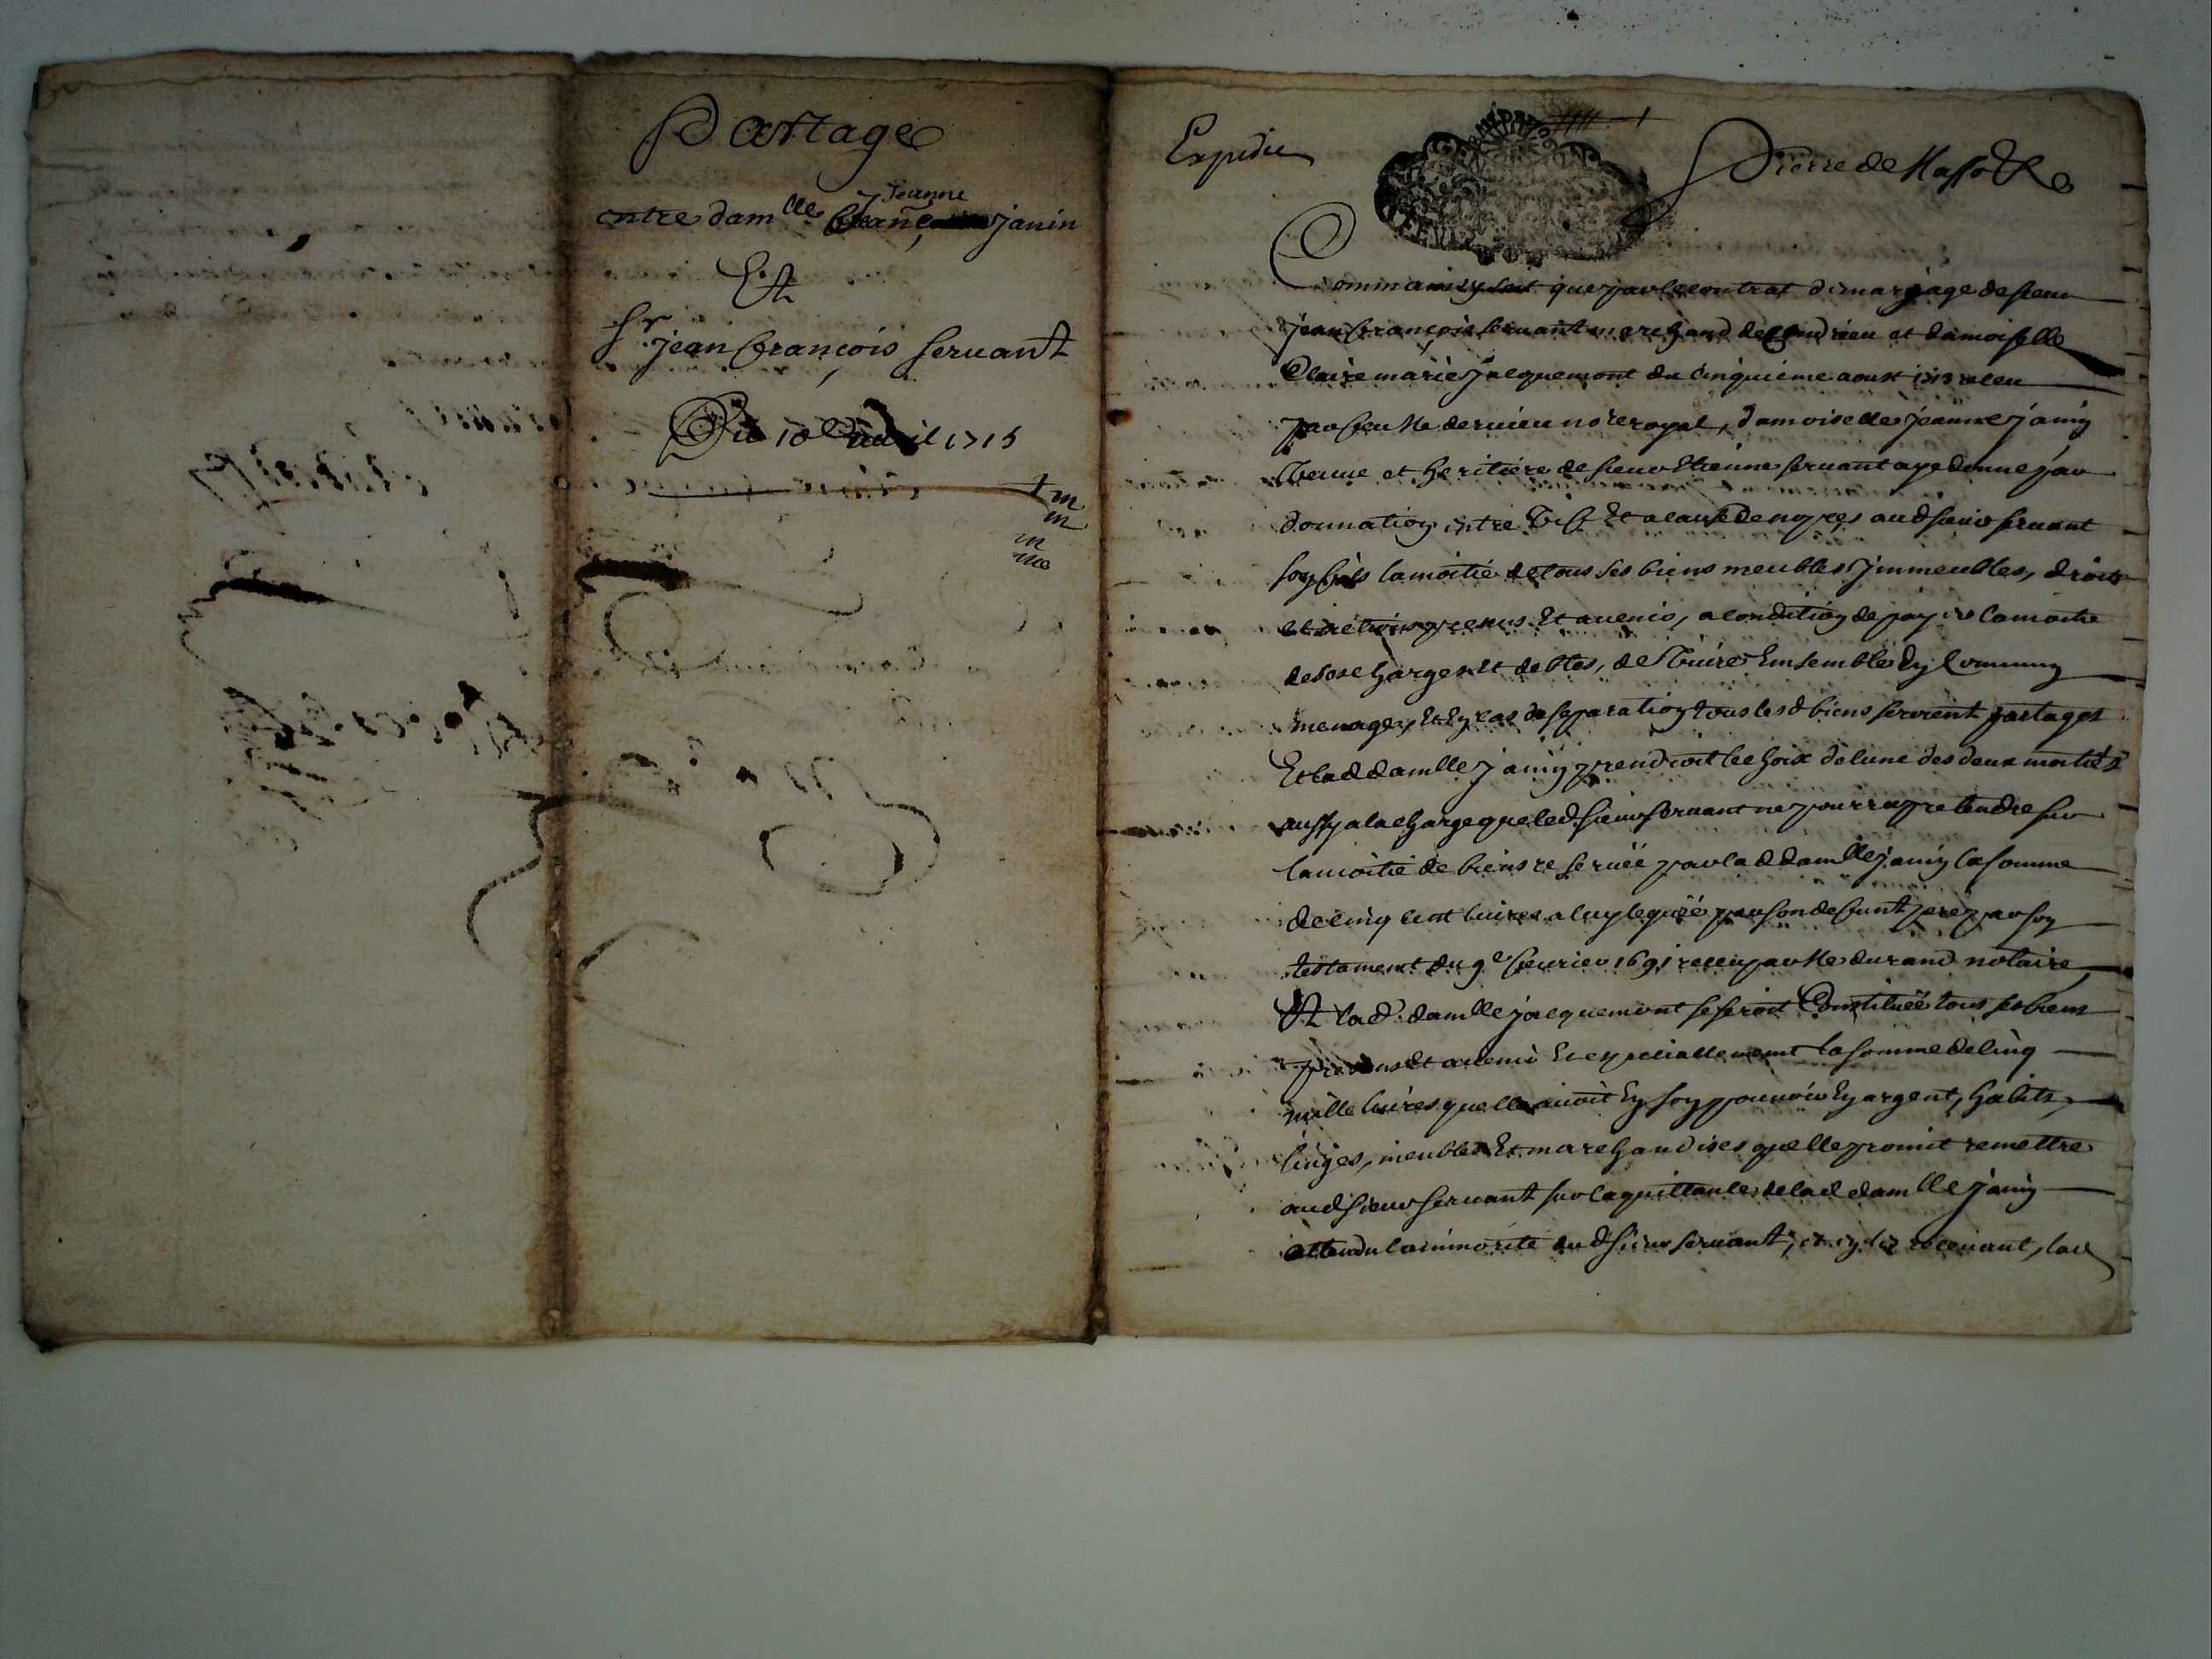 Partage
entre dam.lle Jeanne janin
Et
Sr jean françois seruant
Du 10e auril 1715
Expediée
Pierre de Masso
Comme ainsy soit que par le contrat de mariage de sieur
jean françois seruant marchand de Condrieu et damoiselle
Claire marie jacquemont du cinquieme aoust 1713 receu
par feu Me deruieu nore royal, damoiselle jeanne janin
veuue et heritiere de sieur Etienne seruant aye donné par
donnation entre vifs Et a cause de nopces aud sieur seruant
son fils la moitié de tous ses biens meubles jmmeubles, droits
et actions presens Et auenir, a condition de payer la moitie
de ses charges Et debtes, de viure Ensemble En commung
menage, Et En cas de separation tous lesd biens seroient partagés
Et lad damlle janin prendroit le choix de lune des deux moitiés
aussy a la charge que led sieur seruant ne pourra pretendre sur
la moitié de biens reseruée par lad damlle janin la somme
de cinq cent liures a luy leguée par son defunt pere par son
testament du 9e feurier 1691 receu par Me durand notaire,
Et lad. damlle jacquemont se seroit Constituée tous ses biens
presens Et auenir Et especiallement la somme de cinq
mille liures quelle auoit En son pouuoir En argent, habits,
linges, meubles Et marchandises quelle promit remettre
aud sieur seruant sur la quittance de lad damlle janin
attendu la minorité dud sieur seruant, et en les receuant, lad